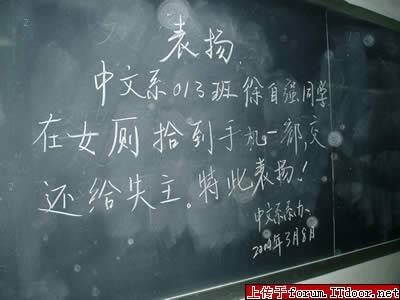 表扬
中文系013班徐自强同学
在女厕拾到手机一部,交
还给失主。特此表扬!
中文系系办
3月8日
上传于forum.ITdoor.net